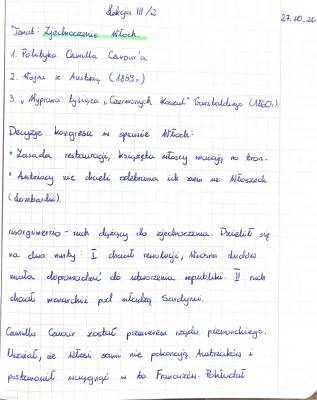 Lekcja III/2
27.10.20
Temat: Zjednoczenie Włoch.
1. Polityka Camilla Cavour'a
2. Wojna z Austrią (1859 r.)
3. "Wyprawa tysiąca "Czerwonych Koszul" Garibaldiego (1860r.)
Decyzje kongresu w sprawie Włoch:
• Zasada restauracji, książęta włoscy wracają na tron.
• Austriacy nie chcieli odebrania ich ziem we Włoszech
(Lombardii).
risorgimento - ruch dążący do zjednoczenia. Dzielił się
na dwa nurty: I chciał rewolucji, Wiosna Ludów
miała doprowadzić do utworzenia republiki. II ruch
chciał monarchii pod władzą Sardynii.
Camillo Cavour został premierem rządu piemonckiego.
Uważał, że Włosi sami nie pokonają Austriaków i
postanowił wciągnąć w to Francuzów.